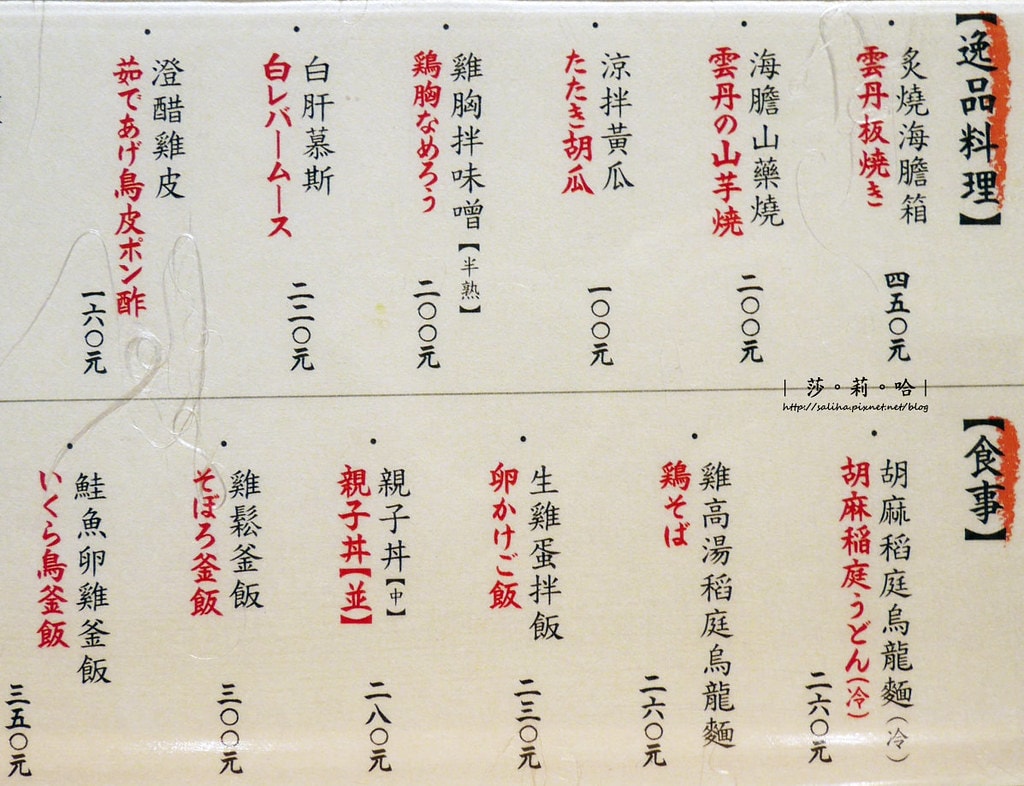 【逸品料理】
炙燒海膽箱
雲丹板焼き
四五〇元
海膽山藥燒
雲丹の山芋焼
二〇〇元
涼拌黃瓜
たたき胡瓜
一〇〇元
雞胸拌味噌【半熟】
鶏胸なめろう
二〇〇元
白肝慕斯
白レバームース
二二〇元
澄醋雞皮
茹であげ鳥皮ポン酢
一六〇元
|莎。莉。哈|
http://saliha.pixnet.net/blog
【食事】
胡麻稻庭烏龍麵(冷)
胡麻稲庭うどん(冷)
二六〇元
雞高湯稻庭烏龍麵
鶏そば
二六〇元
生雞蛋拌飯
卵かけご飯
二三〇元
親子丼【中】
親子丼【並】
二八〇元
雞鬆釜飯
そぼろ釜飯
三〇〇元
鮭魚卵雞釜飯
いくら鳥釜飯
三五〇元